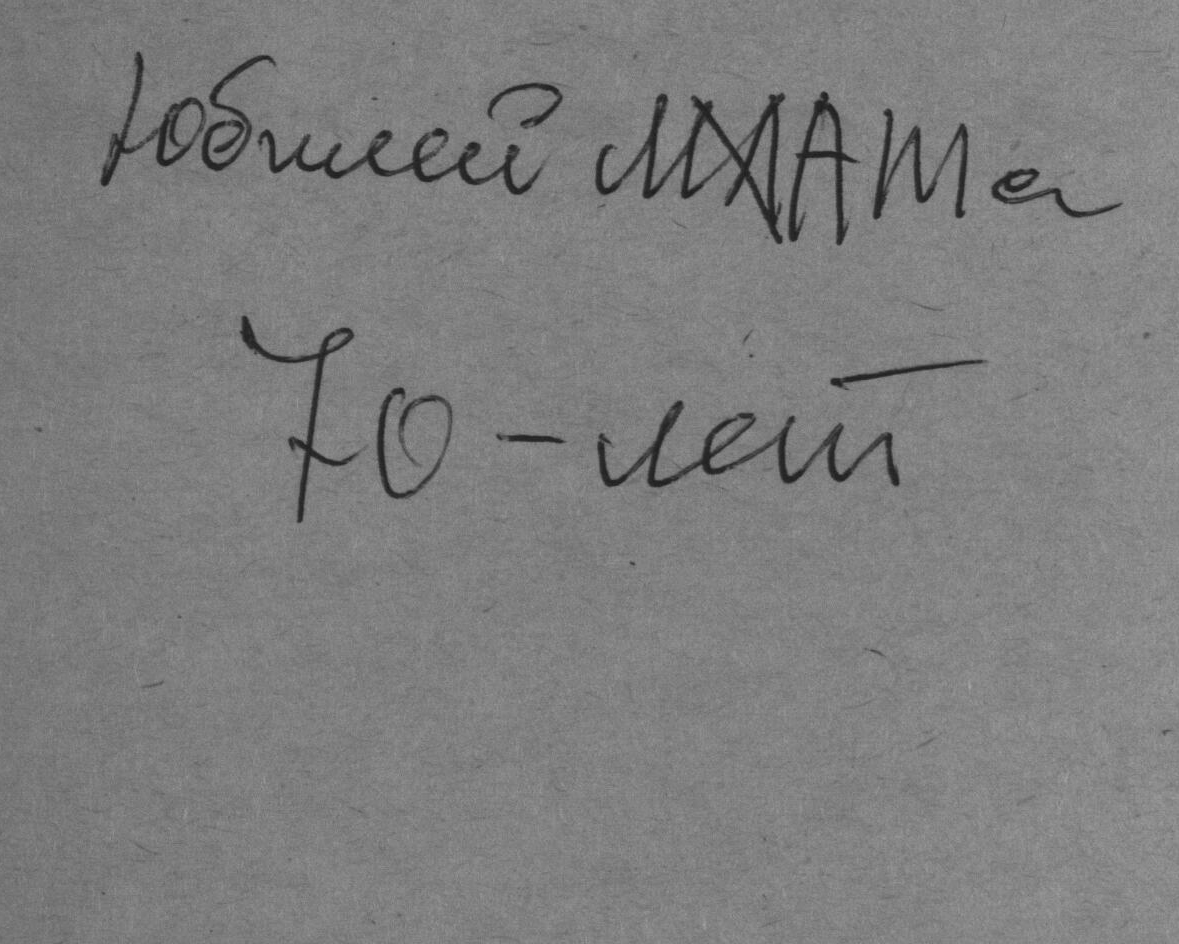 Юбилей МХАТа
70-лет